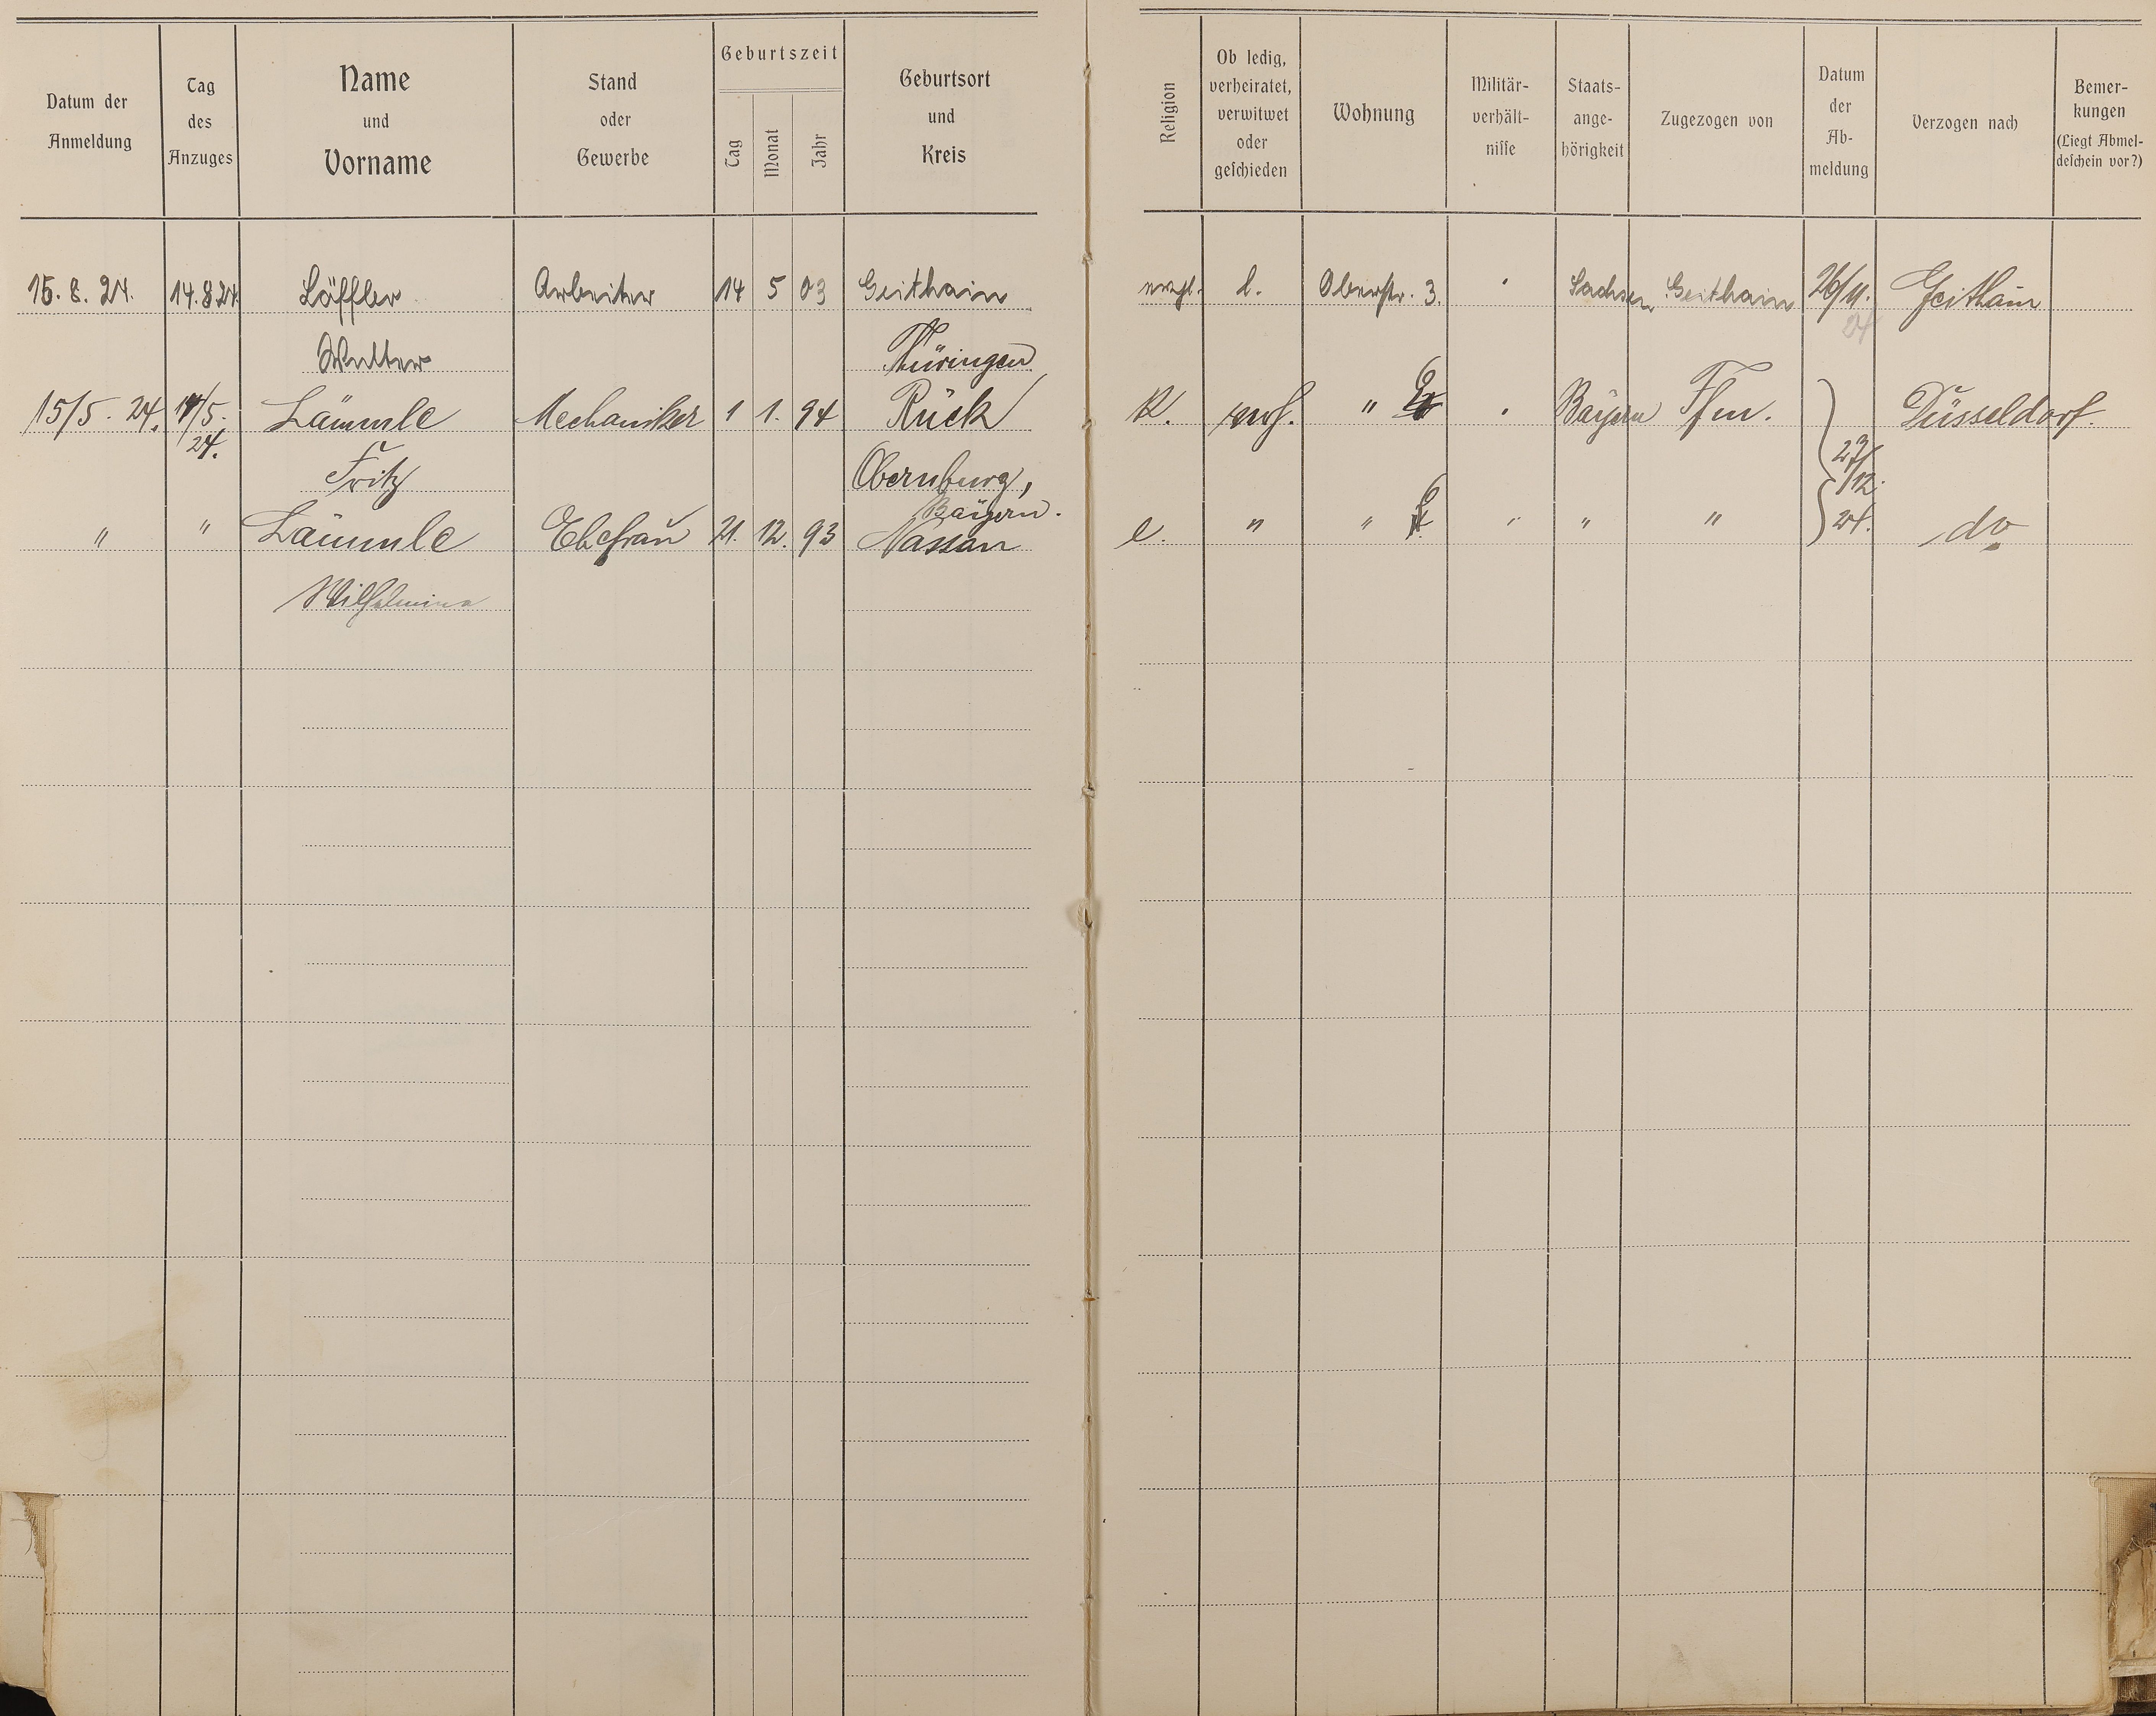 Datum der Anmeldung
Tag des Anzuges
Name und Vorname
Stand oder Gewerbe
Geburtszeit
Tag
Monat
Jahr
Geburtsort und Kreis
Religion
Ob ledig, verheiratet, verwitwet oder geschieden
Wohnung
Militär-verhält-nisse
Staats-ange-hörigkeit
Zugezogen von
Datum der Ab-meldung
Verzogen nach
Bemer-kungen (Liegt Abmel-deschein vor?)
15. 8. 24. 14. 8 24. Löffler Arbeiter 14 5 03 Geithain evgl. l. Oberstr. 3. Sachsen Geithain 26/11. Geithain
24
Walter Thüringen
15/5. 24. 14/5. Lämmle Mechaniker 1 1. 94 Rück K. verh. " Bayern Ffm. Düsseldorf.
24.
Fritz Obernburg, 27/12.
Bayern.
" " Lämmle Ehefrau 21. 12. 93 Nassau e. " " " " " 24. do
Wilhelmina